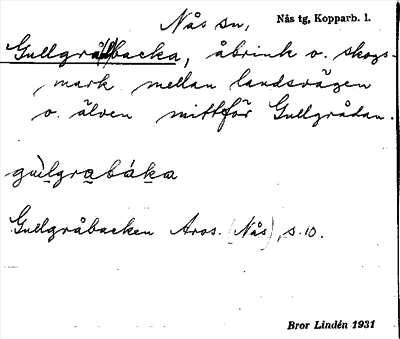 Nås sn, Nås tg, Kopparb. l.
Gullgråbacka, åbrink o. skogs-
mark mellan landsvägen
o. älven mittför Gullgrådan.
gulgrabáka
Gullgråbacken Aros. (Nås), s. 10.
Bror Lindén 1931